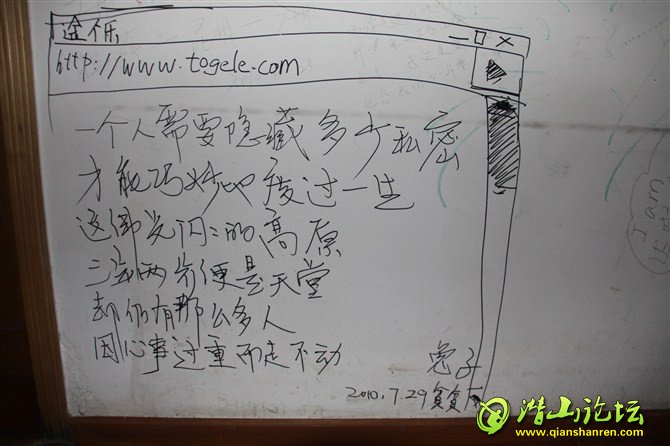 途个乐
http://www.togele.com
一个人需要隐藏多少私密
才能巧妙地度过一生
这佛光闪闪的高原
三步两步便是天堂
却仍有那么多人
因心事过重而走不动
兔子
2010.7.29
I am
潜山论坛
www.qianshanren.com